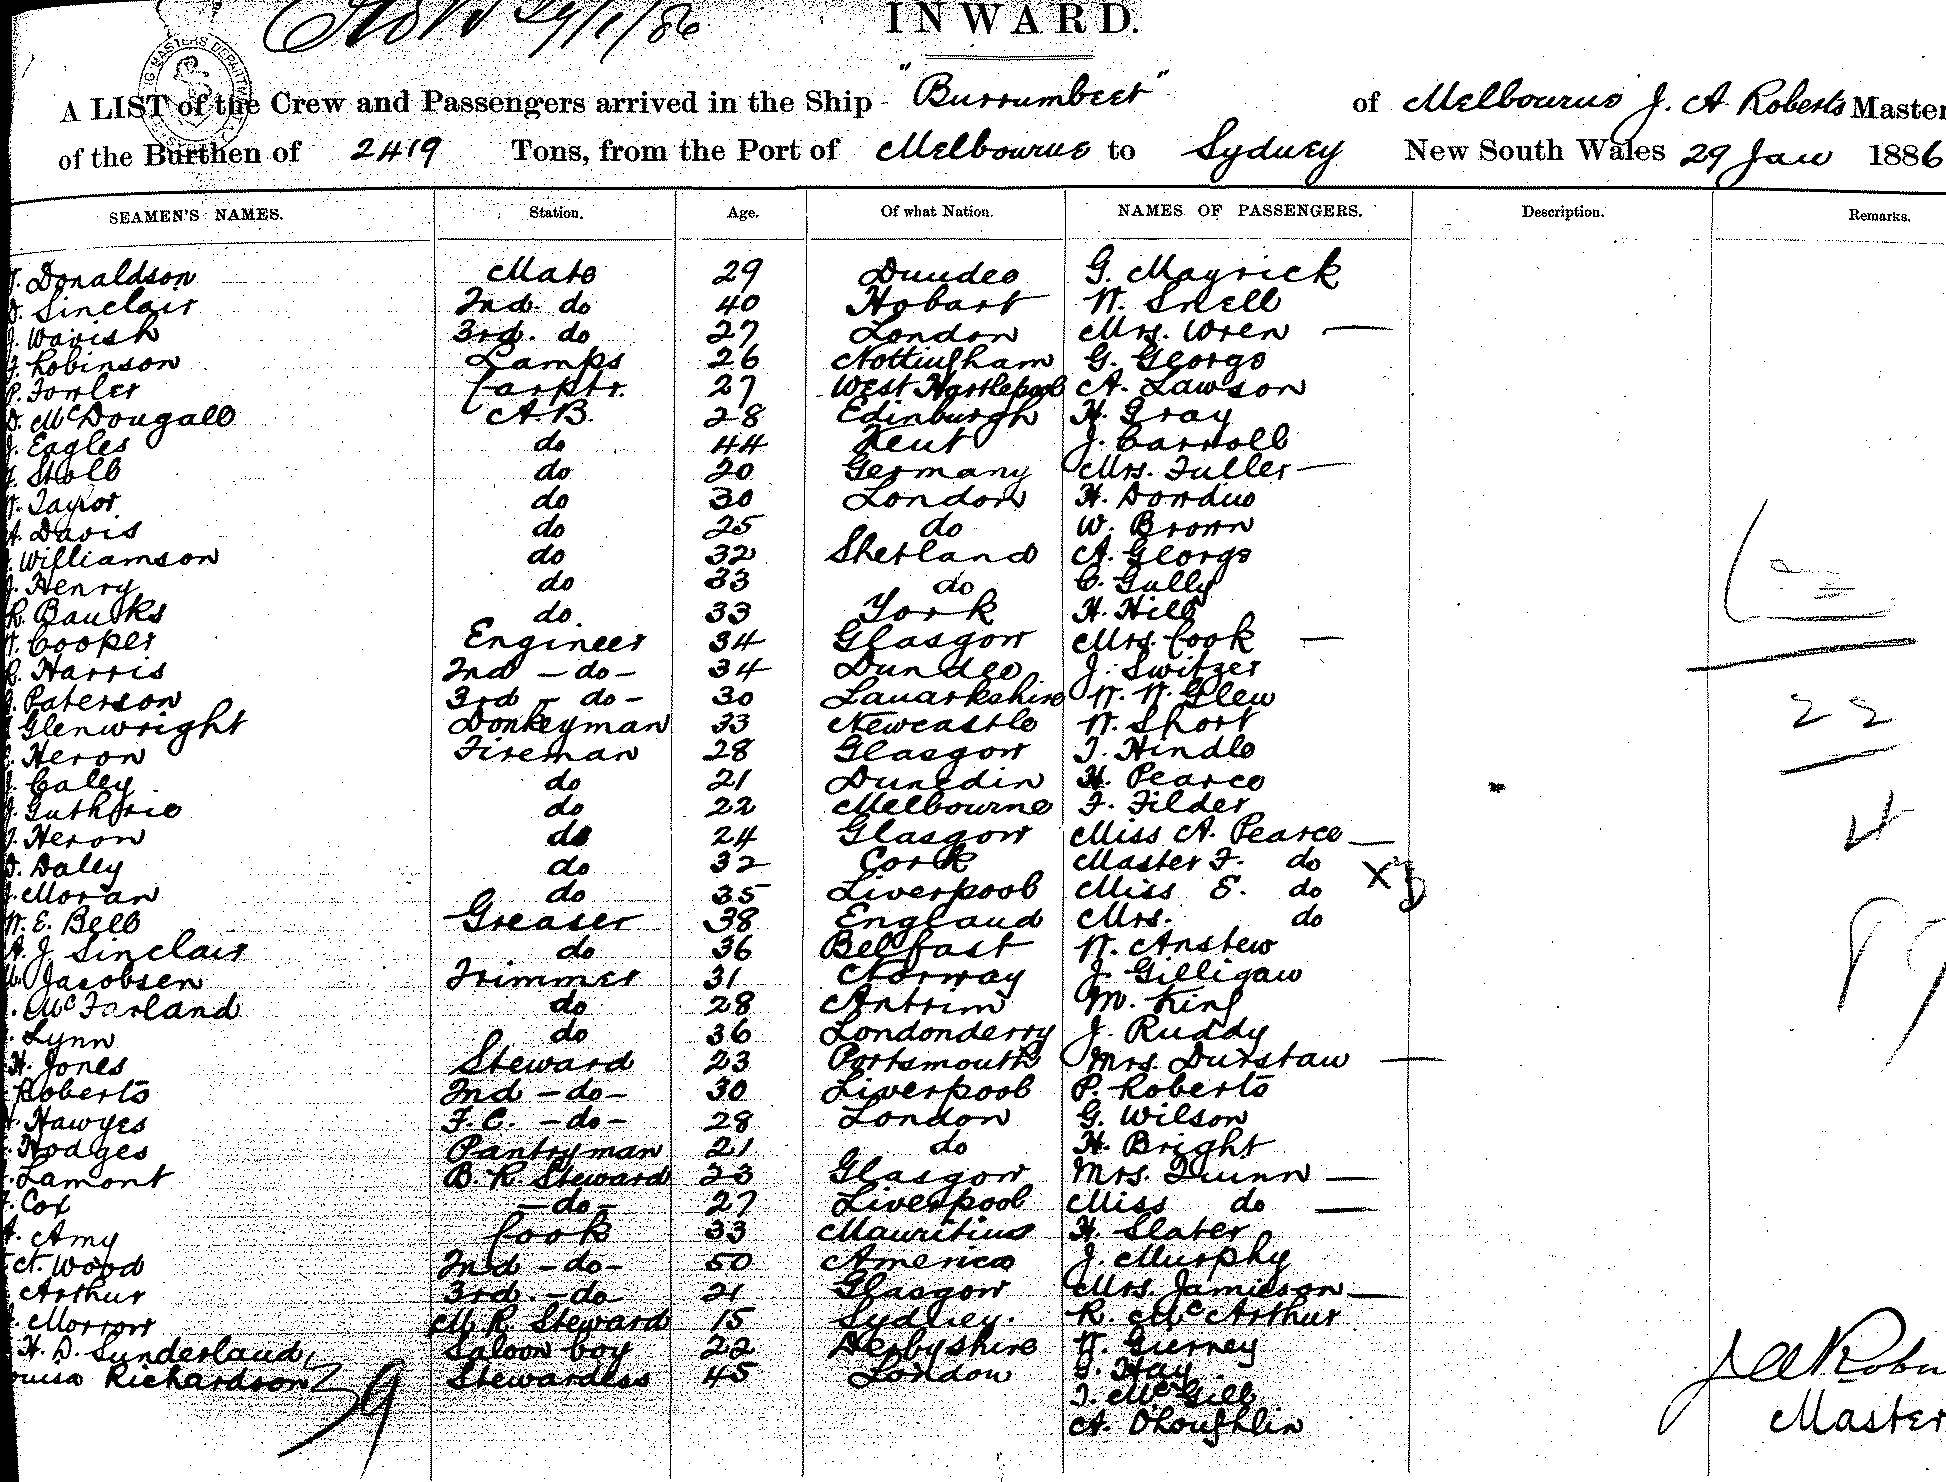 29/1/86
INWARD.
A LIST of the Crew and Passengers arrived in the Ship "Burrumbeet" of Melbourne J. A Roberts Master
of the Burthen of 2419 Tons, from the Port of Melbourne to Sydney New South Wales 29 Jan 1886
SEAMEN'S NAMES. Station. Age. Of what Nation. NAMES OF PASSENGERS. Description. Remarks.
Donaldson Mate 29 Dundee G. Mayrick
Sinclair 2nd. do 40 Hobart W. Snell
Wavish 3rd. do 27 London Mrs. Wren —
Robinson Lamps 26 Nottingham G. George
P. Fowler Carptr. 27 West Hartlepool A. Lawson
D. McDougall A.B. 28 Edinburgh H. Gray
J. Eagles do 44 Kent J. Carroll
Stolb do 20 Germany Mrs. Fuller —
Taylor do 30 London H. Dowdue
A. Davis do 25 do W. Brown
Williamson do 32 Shetland A. George
J. Henry do 33 do C. Gully
R. Banks do. 33 York H. Hill
Cooper Engineer 34 Glasgow Mrs. Cook —
Harris 2nd - do - 34 Dundee J. Switzer
Paterson 3rd - do - 30 Lanarkshire W. W. Glew
Glenwright Donkeyman 33 Newcastle W. Short
Heron Fireman 28 Glasgow T. Hindle
Caley do 21 Dunedin H. Pearce
Guthrie do 22 Melbourne F. Filder
Heron do 24 Glasgow Miss A. Pearce —
D. Daley do 32 Cork Master F. do
J. Moran do 35 Liverpool Miss E. do
W. E. Bell Greaser 38 England Mrs. do
A. J. Sinclair do 36 Belfast W. Anstew
Jacobsen Trimmer 31 Norway J. Gilligan
McFarland do 28 Antrim M. King
Lynn do 36 Londonderry J. Ruddy
H. Jones Steward 23 Portsmouth Mrs. Durstan —
Roberts 2nd - do - 30 Liverpool P. Roberts
Hawyes F.C. - do - 28 London G. Wilson
Hodges Pantryman 21 do H. Bright
Lamont B. R. Steward 23 Glasgow Mrs. Quinn —
Cox - do - 27 Liverpool Miss do —
Amy Cook 33 Mauritius H. Slater
Wood 2nd - do - 50 America J. Murphy
Arthur 3rd. - do - 21 Glasgow Mrs. Jamieson —
Morrow M. R. Steward 15 Sydney. R. McArthur
H. D. Sunderland Saloon boy 22 Derbyshire W. Gierney
ouisa Richardson Stewardess 45 London Hay
T. McGill
A. O'Loughlin
39
22
4
J A Robe
Master